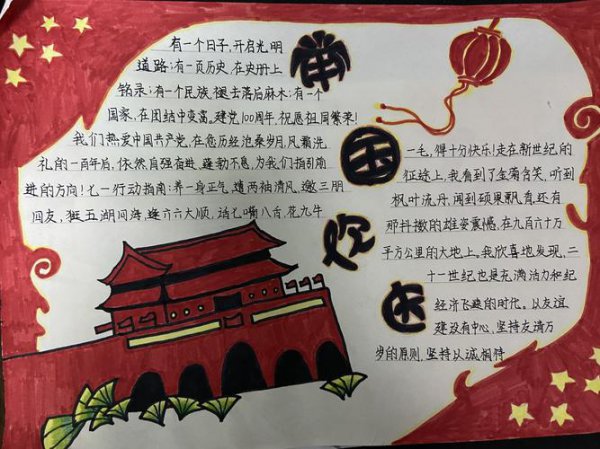 有一个日子,开启光明
道路;有一页历史,在史册上
铭录;有一个民族,褪去落后麻木;有一个
国家,在团结中变富,建党100周年,祝愿祖国繁荣!
我们热爱中国共产党,在危历经沧桑岁月,风霜洗
礼的一百年后,依然,自强奋进,蓬勃不息,为我们指引前
进的方向!七一行动指南:养一身正气,遗两袖清风,邀三朋
四友,逛五湖四海,逢六六大顺,话七嘴八舌,花九牛
普
国
欢
庆
一毛,得十分快乐!走在新世纪的
征途上,我看到了金菊含笑,听到
枫叶流丹,闻到硕果飘香,还有
那抖擞的雄姿震撼,在九百六十万
平方公里的大地上,我欣喜地发现,二
十一世纪也是充满活力和纪
经济飞速的时代。以友谊
建设有中心,坚持友清万
岁的原则,坚持以诚相待